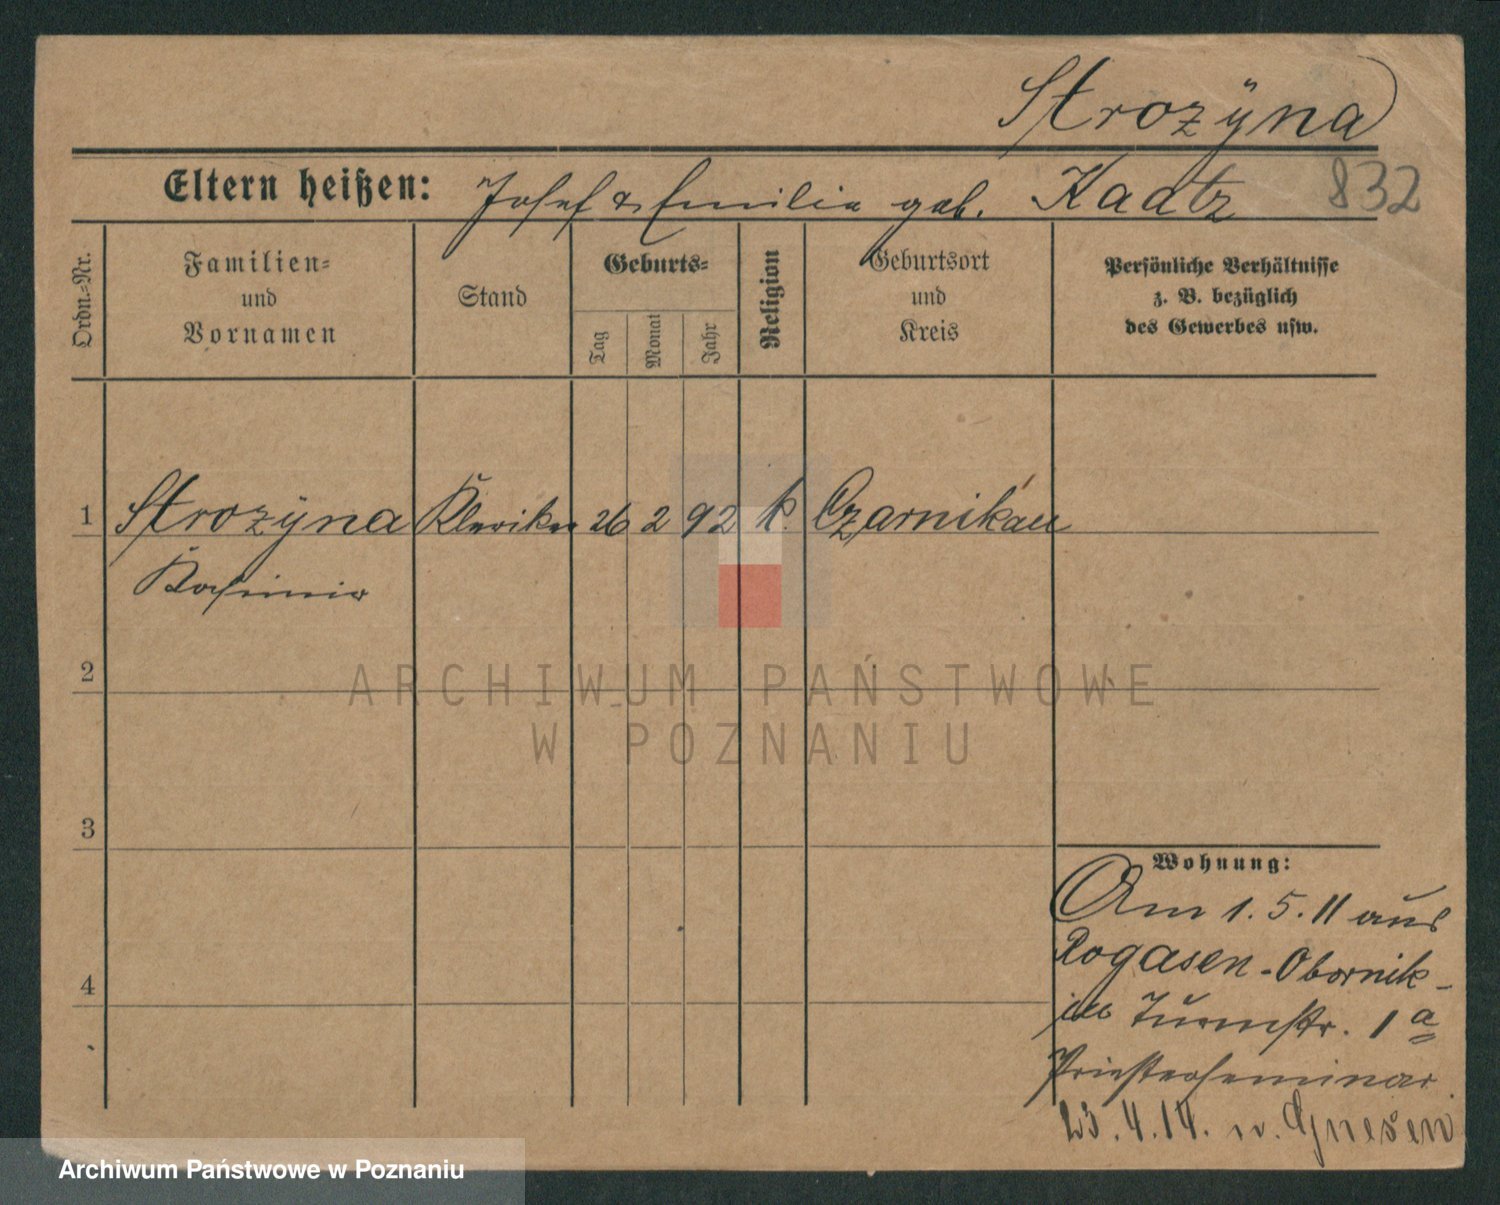 Strozÿna
832
Eltern heißen: Josef & Emilia geb. Kadtz
Ordn.-Nr.
Familien-
und
Vornamen
Stand
Geburts-
Tag
Monat
Jahr
Religion
Geburtsort
und
Kreis
Persönliche Verhältnisse
z. B. bezüglich
des Gewerbes usw.
1 Strozÿna Kleriker 26 2 92 k. Czarnikau
Kasimir
2
3
4
Wohnung:
Am 1. 5. 11 aus
Rogasen-Obornik-
in Turmstr. 1 a
Priesterseminar
23. 4. 14. n. Gnesen
ARCHIWUM PAŃSTWOWE
W POZNANIU
Archiwum Państwowe w Poznaniu